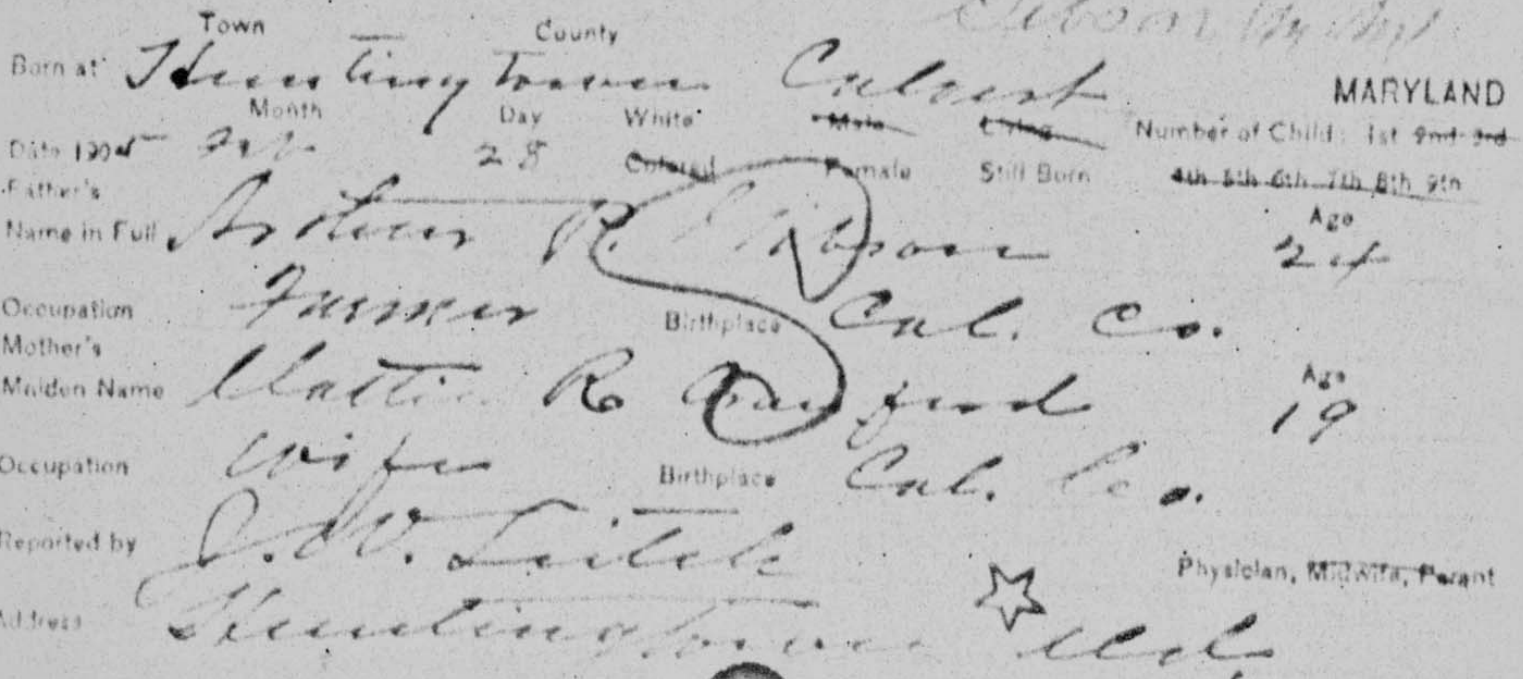 Town County
Born at Huntingtown Calvert MARYLAND
Month Day White Male Living Number of Child: 1st 2nd 3rd
Date 1905 Feb. 28 Colored Female Still Born 4th 5th 6th 7th 8th 9th
Father's Age
Name in Full Arthur R. Gibson 24
Occupation Farmer Birthplace Cal. Co.
Mother's Age
Maiden Name R 19
Occupation Wife Birthplace Cal. Co.
Reported by J. W. Leitch Physician, Midwife, Parent
Address Huntingtown Md.